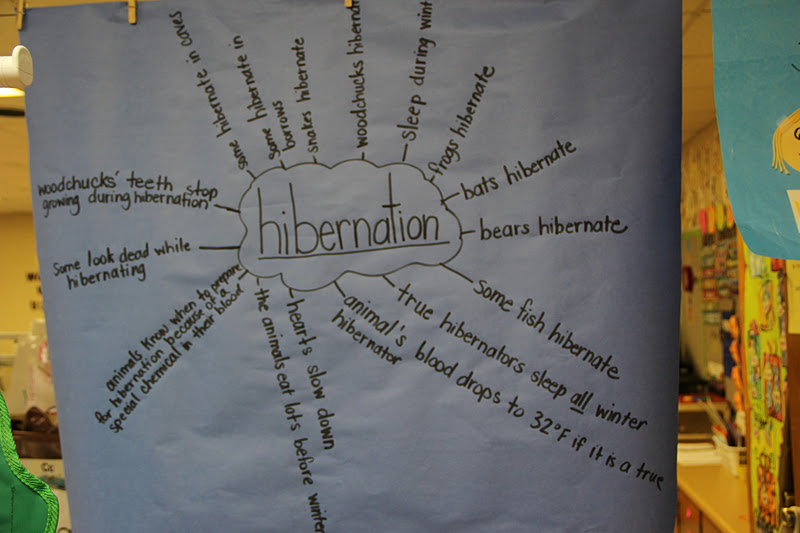 hibernation
some hibernate in caves
some hibernate in
burrows
snakes hibernate
woodchucks hibernat
sleep during wint
frogs hibernate
bats hibernate
bears hibernate
some fish hibernate
true hibernators sleep all winter
animal's blood drops to 32°F if it is a true
hibernator
hearts slow down
the animals eat lots before winter
animals know when to prepare
for hibernation because of a
special chemical in their blood
Some look dead while
hibernating
woodchucks' teeth stop
growing during hibernation